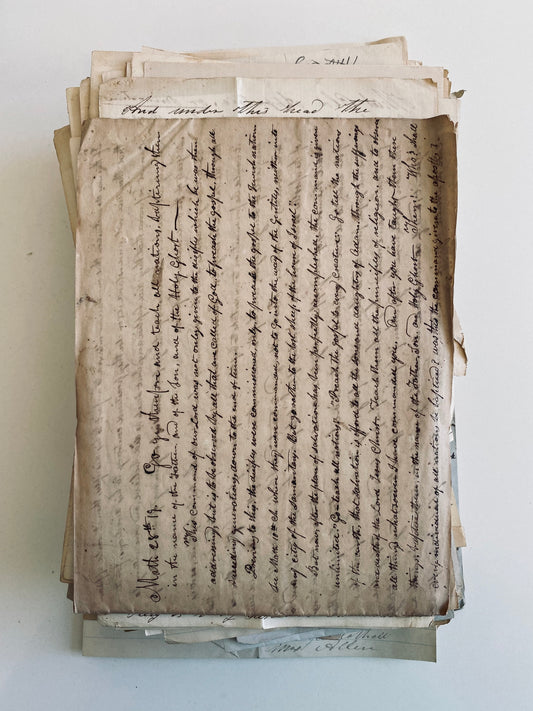 And under the head the
Math 28th 19. Go ye therefore and teach all nations, baptizing them
in the name of the Father and of the Son, and of the Holy Ghost
This command of our Lord was not only given to the disciples which he was then
addressing but is to be observed by all that are called of God, to preach the gospel, through all
succeeding generations, down to the end of time.
Previous to this, the disciples were commissioned only to preach the gospel to the Jewish nation
See Math 10th Ch when they were commanded, not to go into the way of the Gentiles, neither into
any city of the Samaritans. But go rather to the lost sheep of the house of Israel.
But now, after the plan of salvation has been perfectly accomplished, the command is given
unlimited. Go teach all nations. Preach the gospel to every creature. Go tell the nations
of the earth, that salvation is offered to all the sons and daughters of Adam, through the sufferings
and death of the Lord Jesus Christ. Teach them all the principles of religion, and to observe
all things whatsoever I have commanded you. And after you have taught them these
things baptize them in the name of the Father, Son, and Holy Ghost. Then! What? shall
every individual of all nations be baptized? was this the command given to the apostles?
Mrs Allen